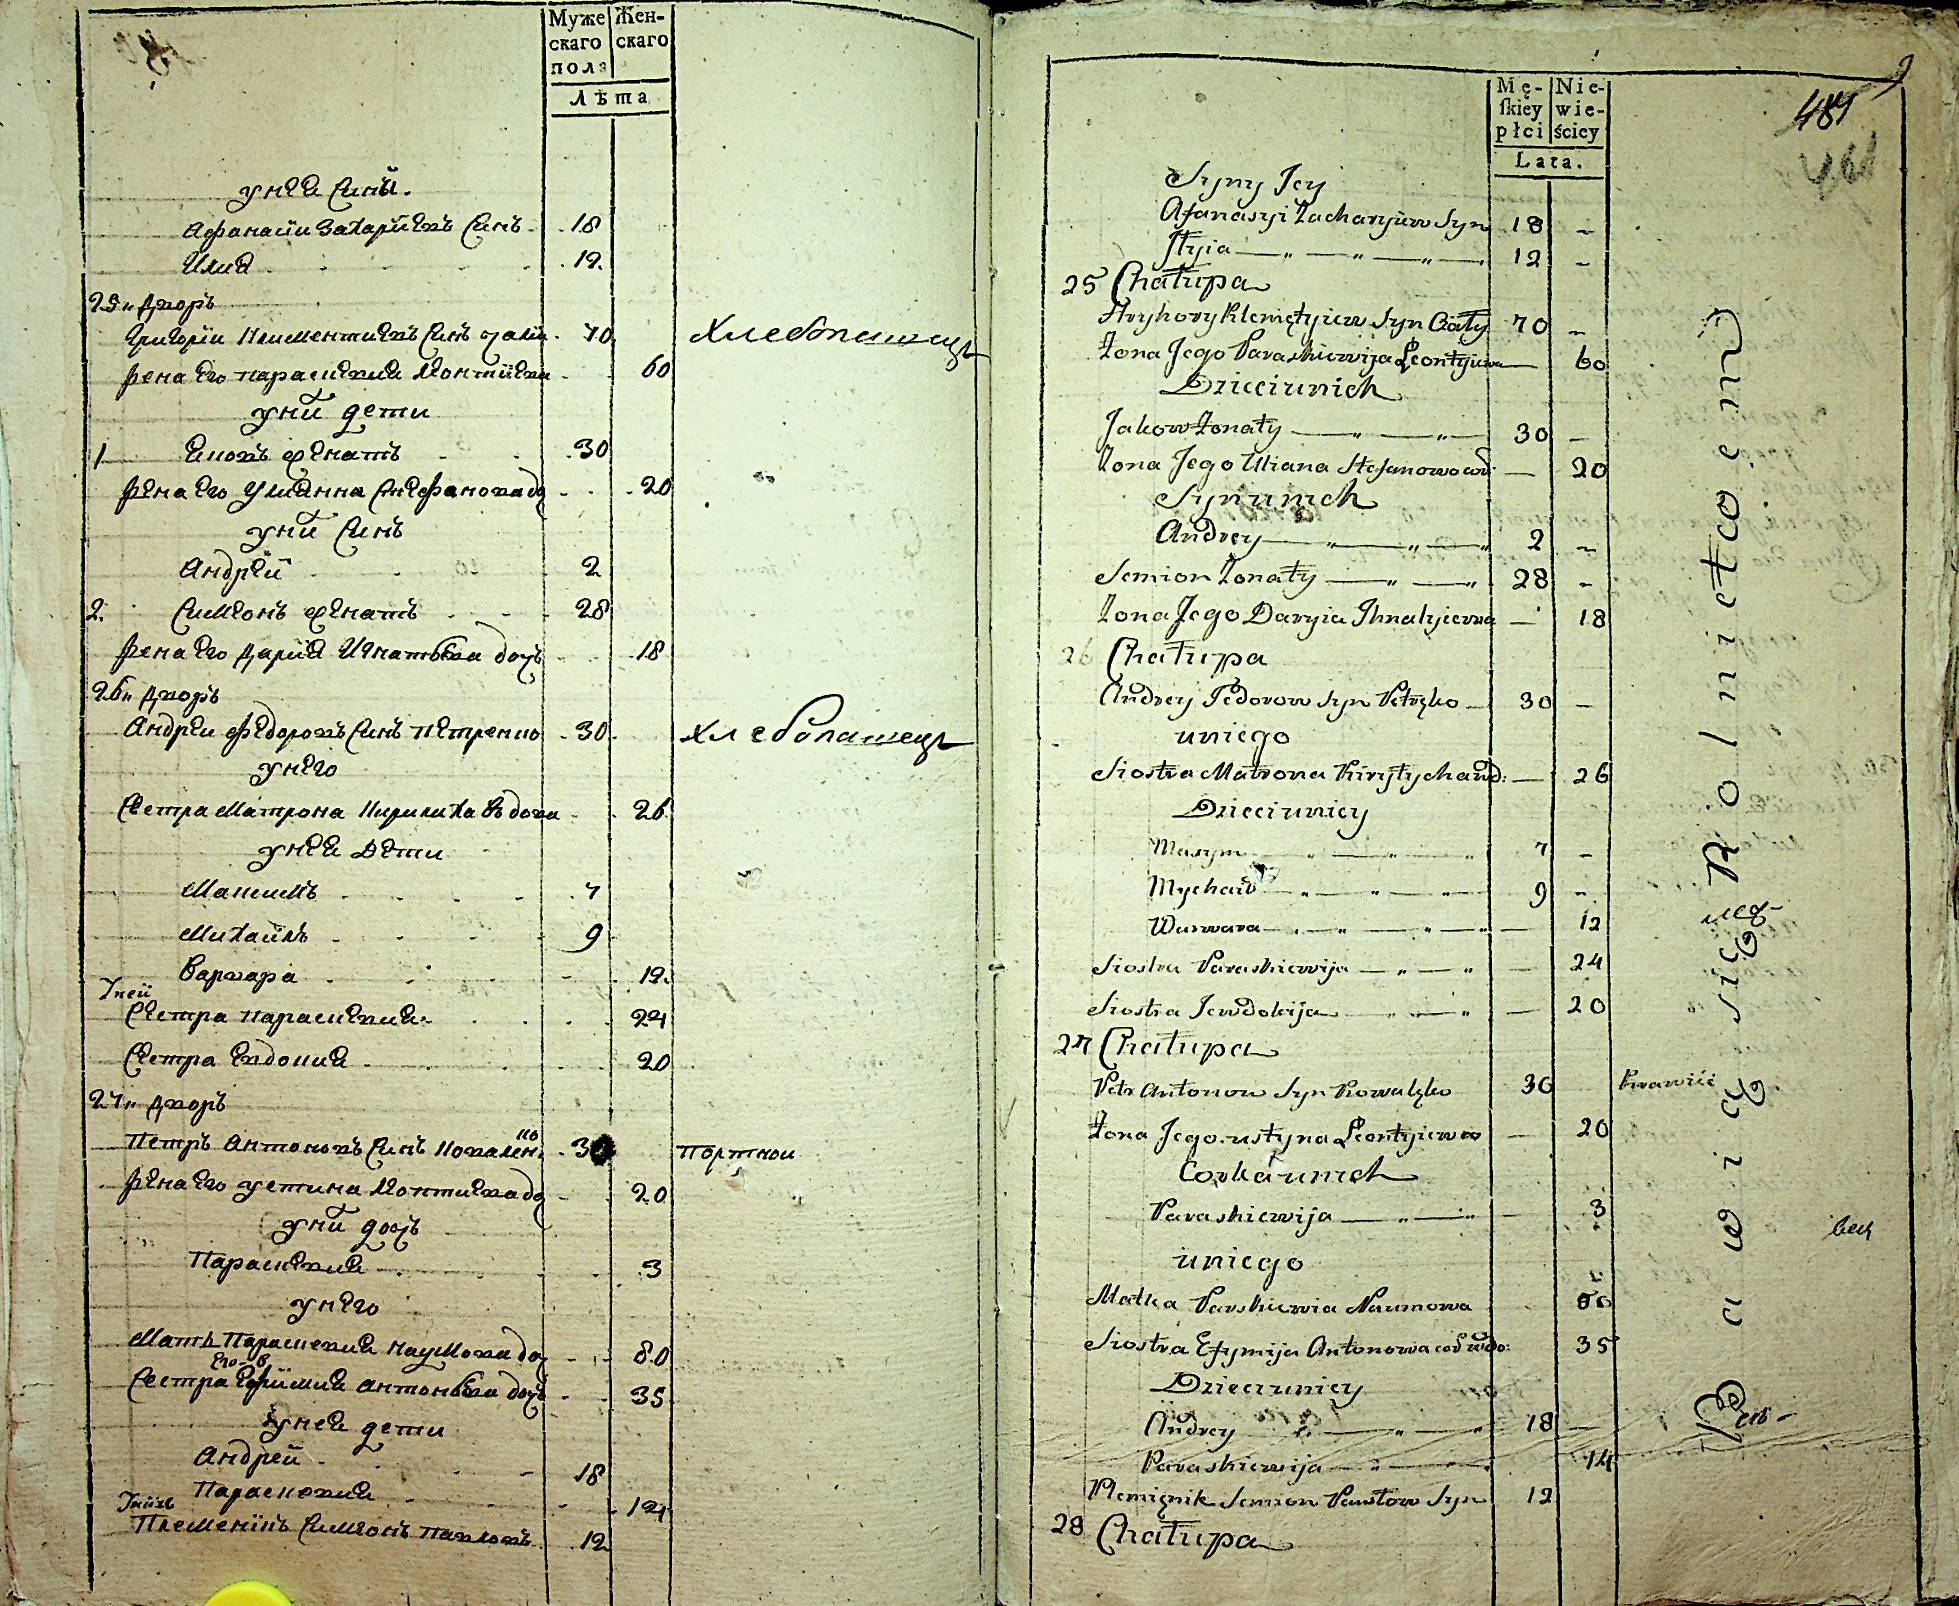 Муже Жен-
скаго скаго
пола
Лѣта
у нея сины.
Афанасии Захариевъ синъ 18
Илия 12
25 дворъ
Григорїи Климентиевъ синъ 70 Хлебопашецъ
жена его параскевия Леонтиева 60
у ний дети
1 Яковъ женатъ 30
жена его Улиянна Стефанова до 20
у ний синъ
Андрей 2
2. Симеонъ женатъ 28
жена его Дария Игнатьева дочь 18
26 дворъ
Андреи Федоровъ синъ Петренко 30 Хлебопашецъ
у него
Сестра Матрона Кирилиха вдова 26
у нея дети
Максимъ 7
Михаилъ 9
Варвара 12
у ней
Сестра параскевия 24
Сестра Евдокия 20
27 дворъ
Петръ Антоновъ синъ Ковален.ко 30 портной
жена его устина Леонтиева до 20
у ний дочь
Параскевия 3
у него
Мать Параскевия Наумова до 80
его-в
Сестра Ефимия Антоньева дочь 35
у нея дети
Андрей 18
Парасковия 14
у нихъ
Племеникъ Симеонъ Павловъ 12
481
Mę- Nie-
skiey wie-
płci ściey
Lata.
Syny Jey
Afanasyi Zacharyiew Syn 18 -
Jłyia — " — " — " — 12 -
25 Chałupa
Hryhory Klemętyiew Syn Ciały 70 -
Żona Jego Paraskiewija Leontyiewa — 60
Dzieci u nich
Jakow Żonaty — " — " — 30 -
Żona Jego Uliana Stefanowa — 20
Syn u nich
Andrey — " — " — " 2 -
Semion Żonaty — " — " 28 -
Żona Jego Daryia Ihnatyiewna — 18
26 Chałupa
Andrey Fedorow Syn Petręko — 30 -
u niego
Siostra Matrona Kiryłycha wd: — 26
Dzieci u niey
Maxym — " — " — " 7 -
Mychaiło — " — " — " 9 -
Warwara — " — " — " — 12
Siostra Paraskiewija — " — " — 24
Siostra Jewdokija — " — " — 20
27 Chałupa
Petr Antonow Syn Kowalęko 30 Krawiec
Żona Jego Ustyna Leontyiewa — 20
Corka u nich
Paraskiewija — " — " — 3
u niego
Matka Parskiewia Naumowa 80
Siostra Efymija Antonowa cor wdo: 35
Dzieci u niey
Andrey — " — " — " 18 —
Paraskiewija — " — " 14
Plemięnik Semion Pawłow Syn 12
28 Chałupa
Bawią się Rolnictwem